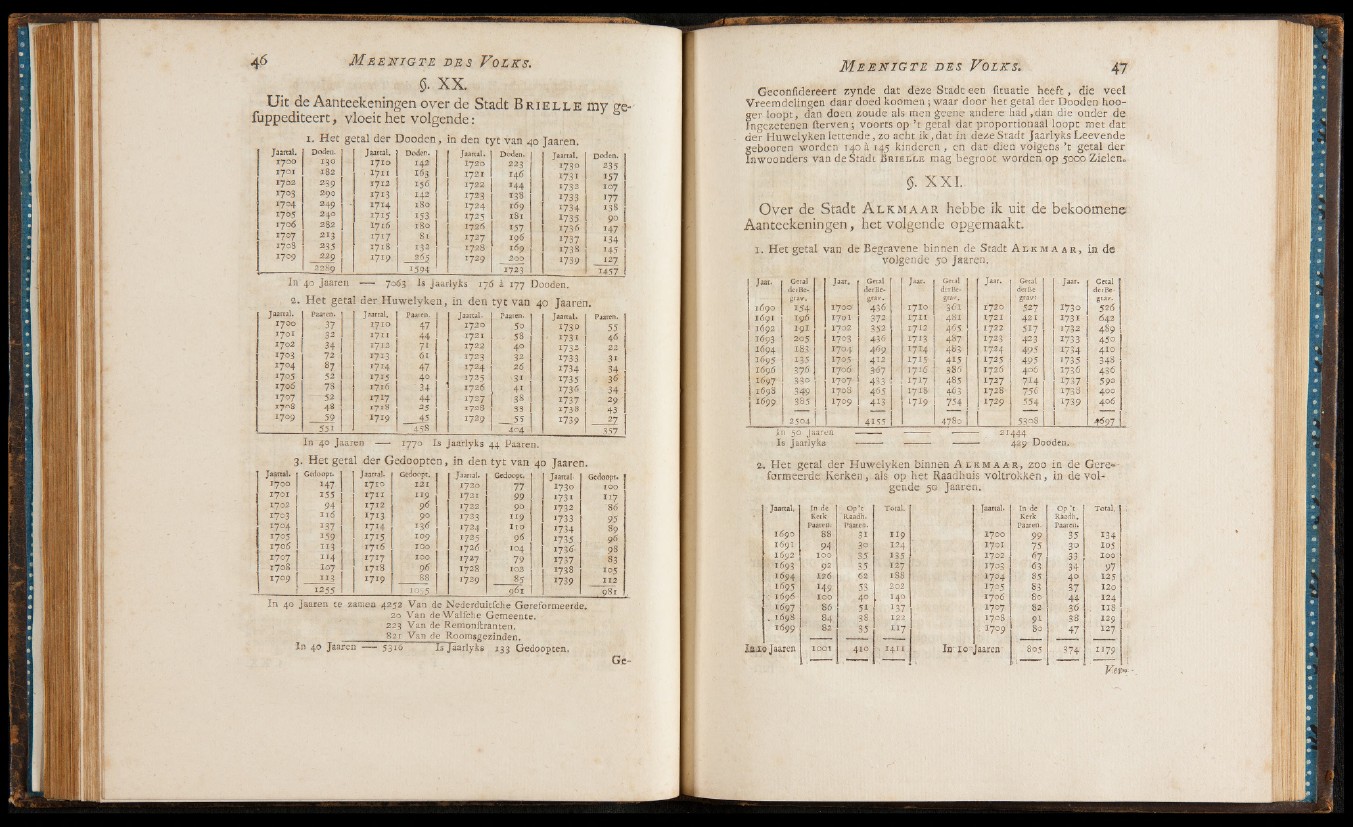 46 MEENIGTE DES VOLKS.
§. XX.
Uit de Aanteekeningen over de Stadt BRIELLE my ge-
suppediteert, vloeit het volgende:
1. Het getal der Dooden, in den tyt van 40 Jaaren.
Jaartal. Doden. Jaartal. Doden. Jaartal. Doden. Jaartal. Doden.
1700 130 1710 142 1720 223 1730 235
1701 182 1711 163 1721 146 1731 157
1702 239 1712 156 1722 144 1732 107
1703 290 1713 142 1723 138 1733 177
1704 249 1714 180 1724 169 1734 138
1705 240 1715 153 1725 181 1735 90
1706 282 1716 180 1726 157 1736 147
1707 213 1717 81 1727 196 1737 134
1708 235 1718 132 1728 169 1738 145
1709 229 1719 265 1729 200 1739 127
2289 1594 1723 1457
In 40 Jaaren —— 7063 Is Jaarlyks 176 à 177 Dooden.
2. Het getal der Huwelyken, in den tyt van 40 Jaaren.
Jaartal. Paaren. Jaartal. Paaren. Jaartal. Paaren. Jaartal. Paaren.
1700 37 1710 47 1720 50 1730 55
1701 32 1711 44 1721 58 1731 46
1702 34 1712 71 1722 40 1732 22
1703 72 1713 61 1723 32 1733 31
1704 87 1714 47 1724 26 1734 34
1705 52 1715 40 1725 31 1735 36
1706 78 1716 34 1726 41 1736 34
1707 52 1717 44 1727 38 1737 29
1708 48 1718 25 1728 33 1738 43
1709 59 1719 45 1729 55 1739 27
551 458 404 357
In 40 Jaaren —— 1770 Is Jaarlyks 44 Paaren.
3. Het getal der Gedoopten, in den tyt van 40 Jaaren.
Jaartal. Gedoopt. Jaartal. Gedoopt. Jaartal. Gedoopt. Jaartal Gedoopt.
1700 147 1710 121 1720 77 1730 100
1701 155 1711 119 1721 99 1731 117
1702 94 1712 96 1722 90 1732 86
1703 116 1713 90 1723 119 1733 95
1704 137 1714 136 1724 110 1734 89
1705 159 1715 109 1725 96 1735 96
1706 113 1716 100 1726 104 1736 98
1707 114 1717 100 1727 79 1737 83
1708 107 1718 96 1728 102 1738 105
1709 113 1719 88 1729 85 1739 112
1255 1055 961 981
In 40 Jaaren te zamen 4252 Van de Nederduitsche Gereformeerde.
20 Van de Walsche Gemeente.
223 Van de Remonstranten.
821 Van de Roomsgezinden.
In 40 Jaaren —— 5316 Is Jaarlyks 133 Gedoopten.
Ge-
MEENIGTE DES VOLKS. 47
Geconsidereert zynde dat deze Stadt een situatie heeft, die veel
Vreemdelingen daar doed koomen; waar door het getal der Dooden hoo-
ger loopt, dan doen zoude als men geene andere had, dan die onder de
Ingezetenen sterven; voorts op 't getal dat proportionaal loopt met dat
der Huwelyken lettende, zo acht ik, dat in deze Stadt Jaarlyks Leevende
gebooren worden 140 à 145 kinderen, en dat dien volgens 't getal der
Inwoonders van de Stadt BRIELLE mag begroot worden op 5000 Zielen.
§. XXI.
Over de Stadt ALKMAAR hebbe ik uit de bekoomene
Aanteekeningen, het volgende opgemaakt.
1. Het getal van de Begravene binnen de Stadt ALKMAAR, in de
volgende 50 jaaren.
Jaar. Getal Jaar. Getal Jaar. Getal Jaar. Getal Jaar. Getal
der Be- der Be- der Be- der Be- der Be-
grav. grav. grav. grav. grav.
1690 154 1700 436 1710 361 1720 527 1730 526
1691 196 1701 372 1711 481 1721 421 1731 642
1692 191 1702 352 1712 465 1722 517 1732 489
1693 205 1703 436 1713 487 1723 423 1733 450
1694 183 1704 469 1714 483 1724 495 1734 410
1695 135 1705 412 1715 415 1725 495 1735 348
1696 376 1706 367 1716 386 1726 406 1736 436
1697 330 1707 433 1717 485 1727 714 1737 590
1698 349 1708 465 1718 463 1728 756 1738 400
1699 385 1709 413 1719 754 1729 554 1739 406
2504 4155 4780 5308 4697
In 50 Jaaren —— —— —— 21444
Is Jaarlyks —— —— —— 429 Dooden.
2. Het getal der Huwelyken binnen ALKMAAR, zoo in de Gere-
formeerde Kerken, als op het Raadhuis voltrokken, in de vol-
gende 50 Jaaren.
Jaartal. In de Op 't Total. Jaartal. In de Op 't Total.
Kerk Raadh. Kerk Raadh.
Paaren. Paaren. Paaren. Paaren.
1690 88 31 119 1700 99 35 134
1691 94 30 124 1701 75 30 105
1692 100 35 135 1702 67 33 100
1693 92 35 127 1703 63 34 97
1694 126 62 188 1704 85 40 125
1695 149 53 202 1705 83 37 120
1696 100 40 140 1706 80 44 124
1697 86 51 137 1707 82 36 118
1698 84 38 122 1708 91 38 129
1699 82 35 117 1709 80 47 127
In 10 Jaaren 1001 410 1411 In 10 Jaaren 805 374 1179
Ver-